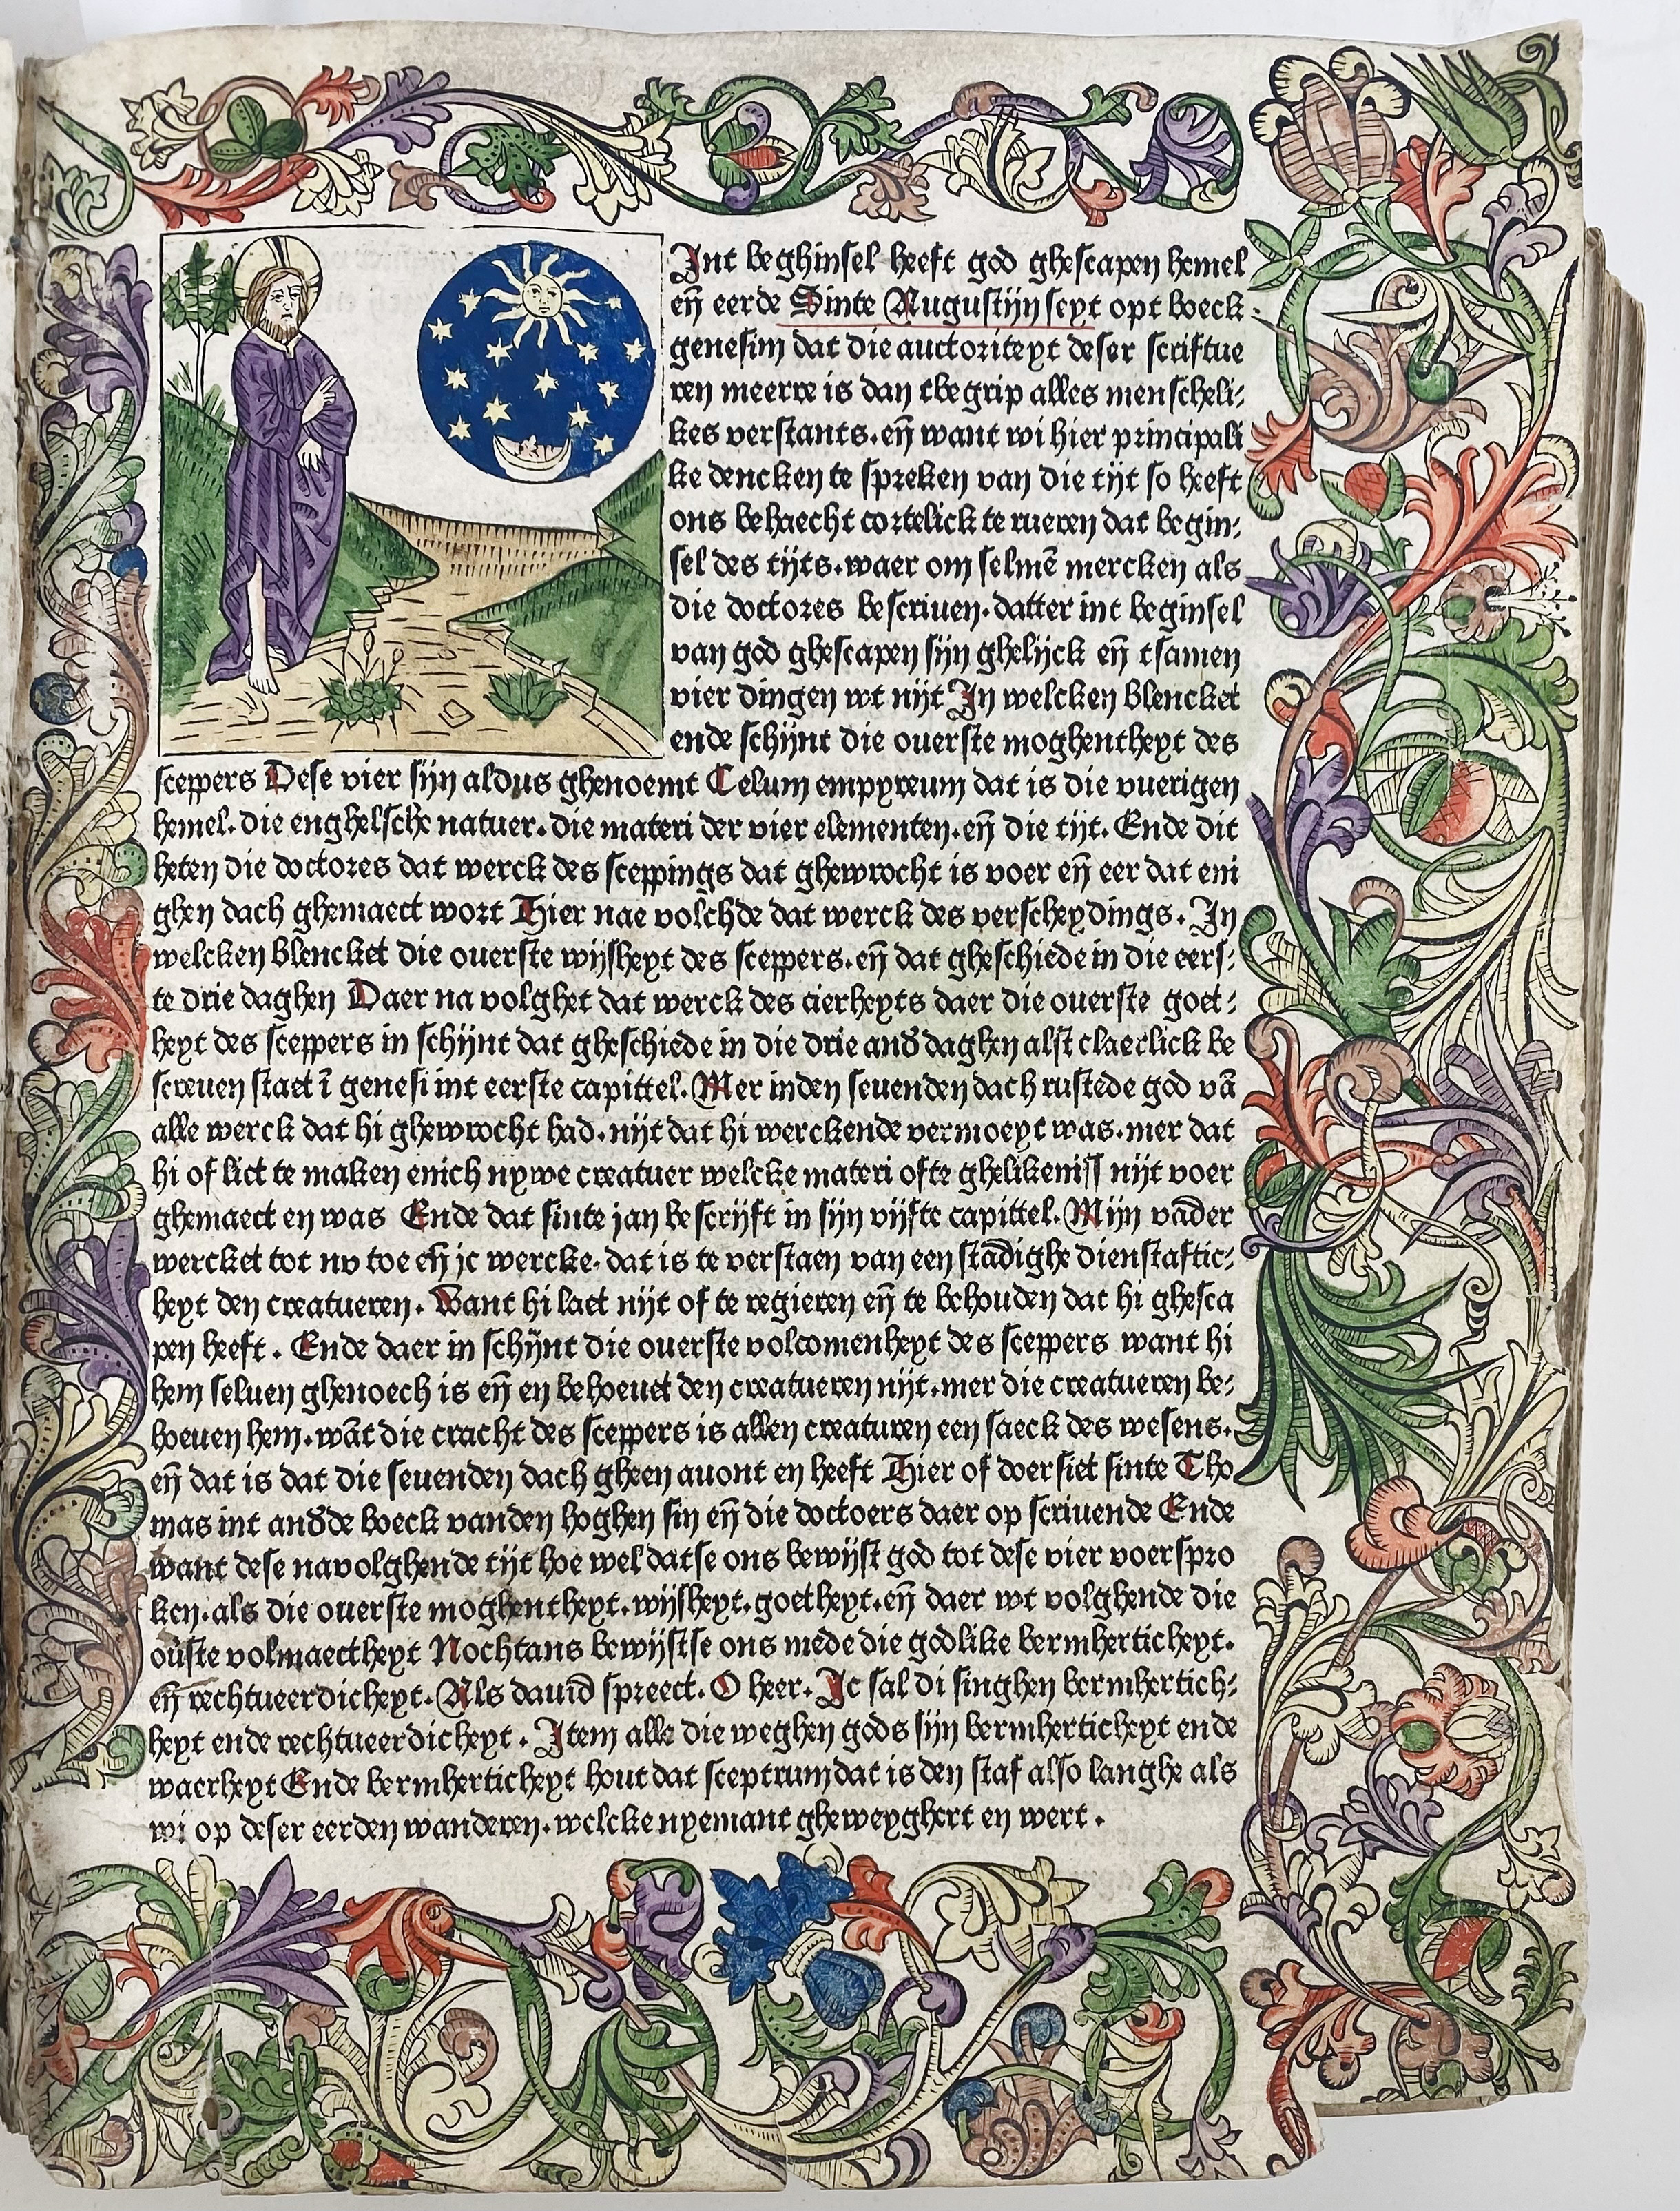 Int beghinsel heeft god ghescapen hemel
eñ eerde Sinte Augustijn seyt opt boeck
genesim dat die auctoriteyt deser scriftue
ren meerre is dan tbegrip alles menscheli⸗
kes verstants. eñ want wi hier principali
ke dencken te spreken van die tijt so heeft
ons behaecht cortelick te rueren dat begin⸗
sel des tijts. waer om selmē mercken als
die doctores bescriuen. datter int beginsel
van god ghescapen sijn ghelijck eñ tsamen
vier dingen wt nijt In welcken blencket
ende schijnt die ouerste moghentheyt des
sceppers Dese vier sijn aldus ghenoemt Celum empyreum dat is die vuerigen
hemel. die enghelsche natuer. die materi der vier elementen. eñ die tijt. Ende dit
heten die doctores dat werck des sceppings dat ghewrocht is voer eñ eer dat eni
ghen dach ghemaect wort Hier nae volchde dat werck des verscheydings. In
welcken blencket die ouerste wijsheyt des sceppers. eñ dat gheschiede in die eers⸗
te drie daghen Daer na volghet dat werck des cierheyts daer die ouerste goet⸗
heyt des sceppers in schijnt dat gheschiede in die drie anđ daghen alst claerlick be
screuen staet ī genesi int eerste capittel. Mer inden seuenden dach rustede god vā
alle werck dat hi ghewrocht had. nijt dat hi werckende vermoeyt was. mer dat
hi of liet te maken enich nywe creatuer welcke materi ofte ghelikeniss nijt voer
ghemaect en was Ende dat sinte jan bescrijft in sijn vijfte capittel. Mijn vāder
wercket tot nv toe eñ ic wercke. dat is te verstaen van een stādighe dienstaftic⸗
heyt den creatueren. Want hi laet nijt of te regieren eñ te behouden dat hi ghesca
pen heeft. Ende daer in schijnt die ouerste volcomenheyt des sceppers want hi
hem seluen ghenoech is eñ en behoeuet den creatueren nijt. mer die creatueren be⸗
hoeuen hem. wāt die cracht des sceppers is allen creaturen een saeck des wesens.
eñ dat is dat die seuenden dach gheen auont en heeft Hier of doersiet sinte Tho
mas int anđde boeck vanden hoghen sin eñ die doctoers daer op scriuende Ende
want dese navolghende tijt hoe wel datse ons bewijst god tot dese vier voerspro
ken. als die ouerste moghentheyt. wijsheyt. goetheyt. eñ daer wt volghende die
oūste volmaectheyt Nochtans bewijstse ons mede die godlike bermherticheyt.
eñ rechtueerdicheyt. Als dauid spreect. O heer. Ic sal di singhen bermhertich⸗
heyt ende rechtueerdicheyt. Item alle die weghen gods sijn bermherticheyt ende
waerheyt Ende bermherticheyt hout dat sceptrum dat is den staf also langhe als
wi op deser eerden wanderen. welcke nyemant gheweyghert en wert.